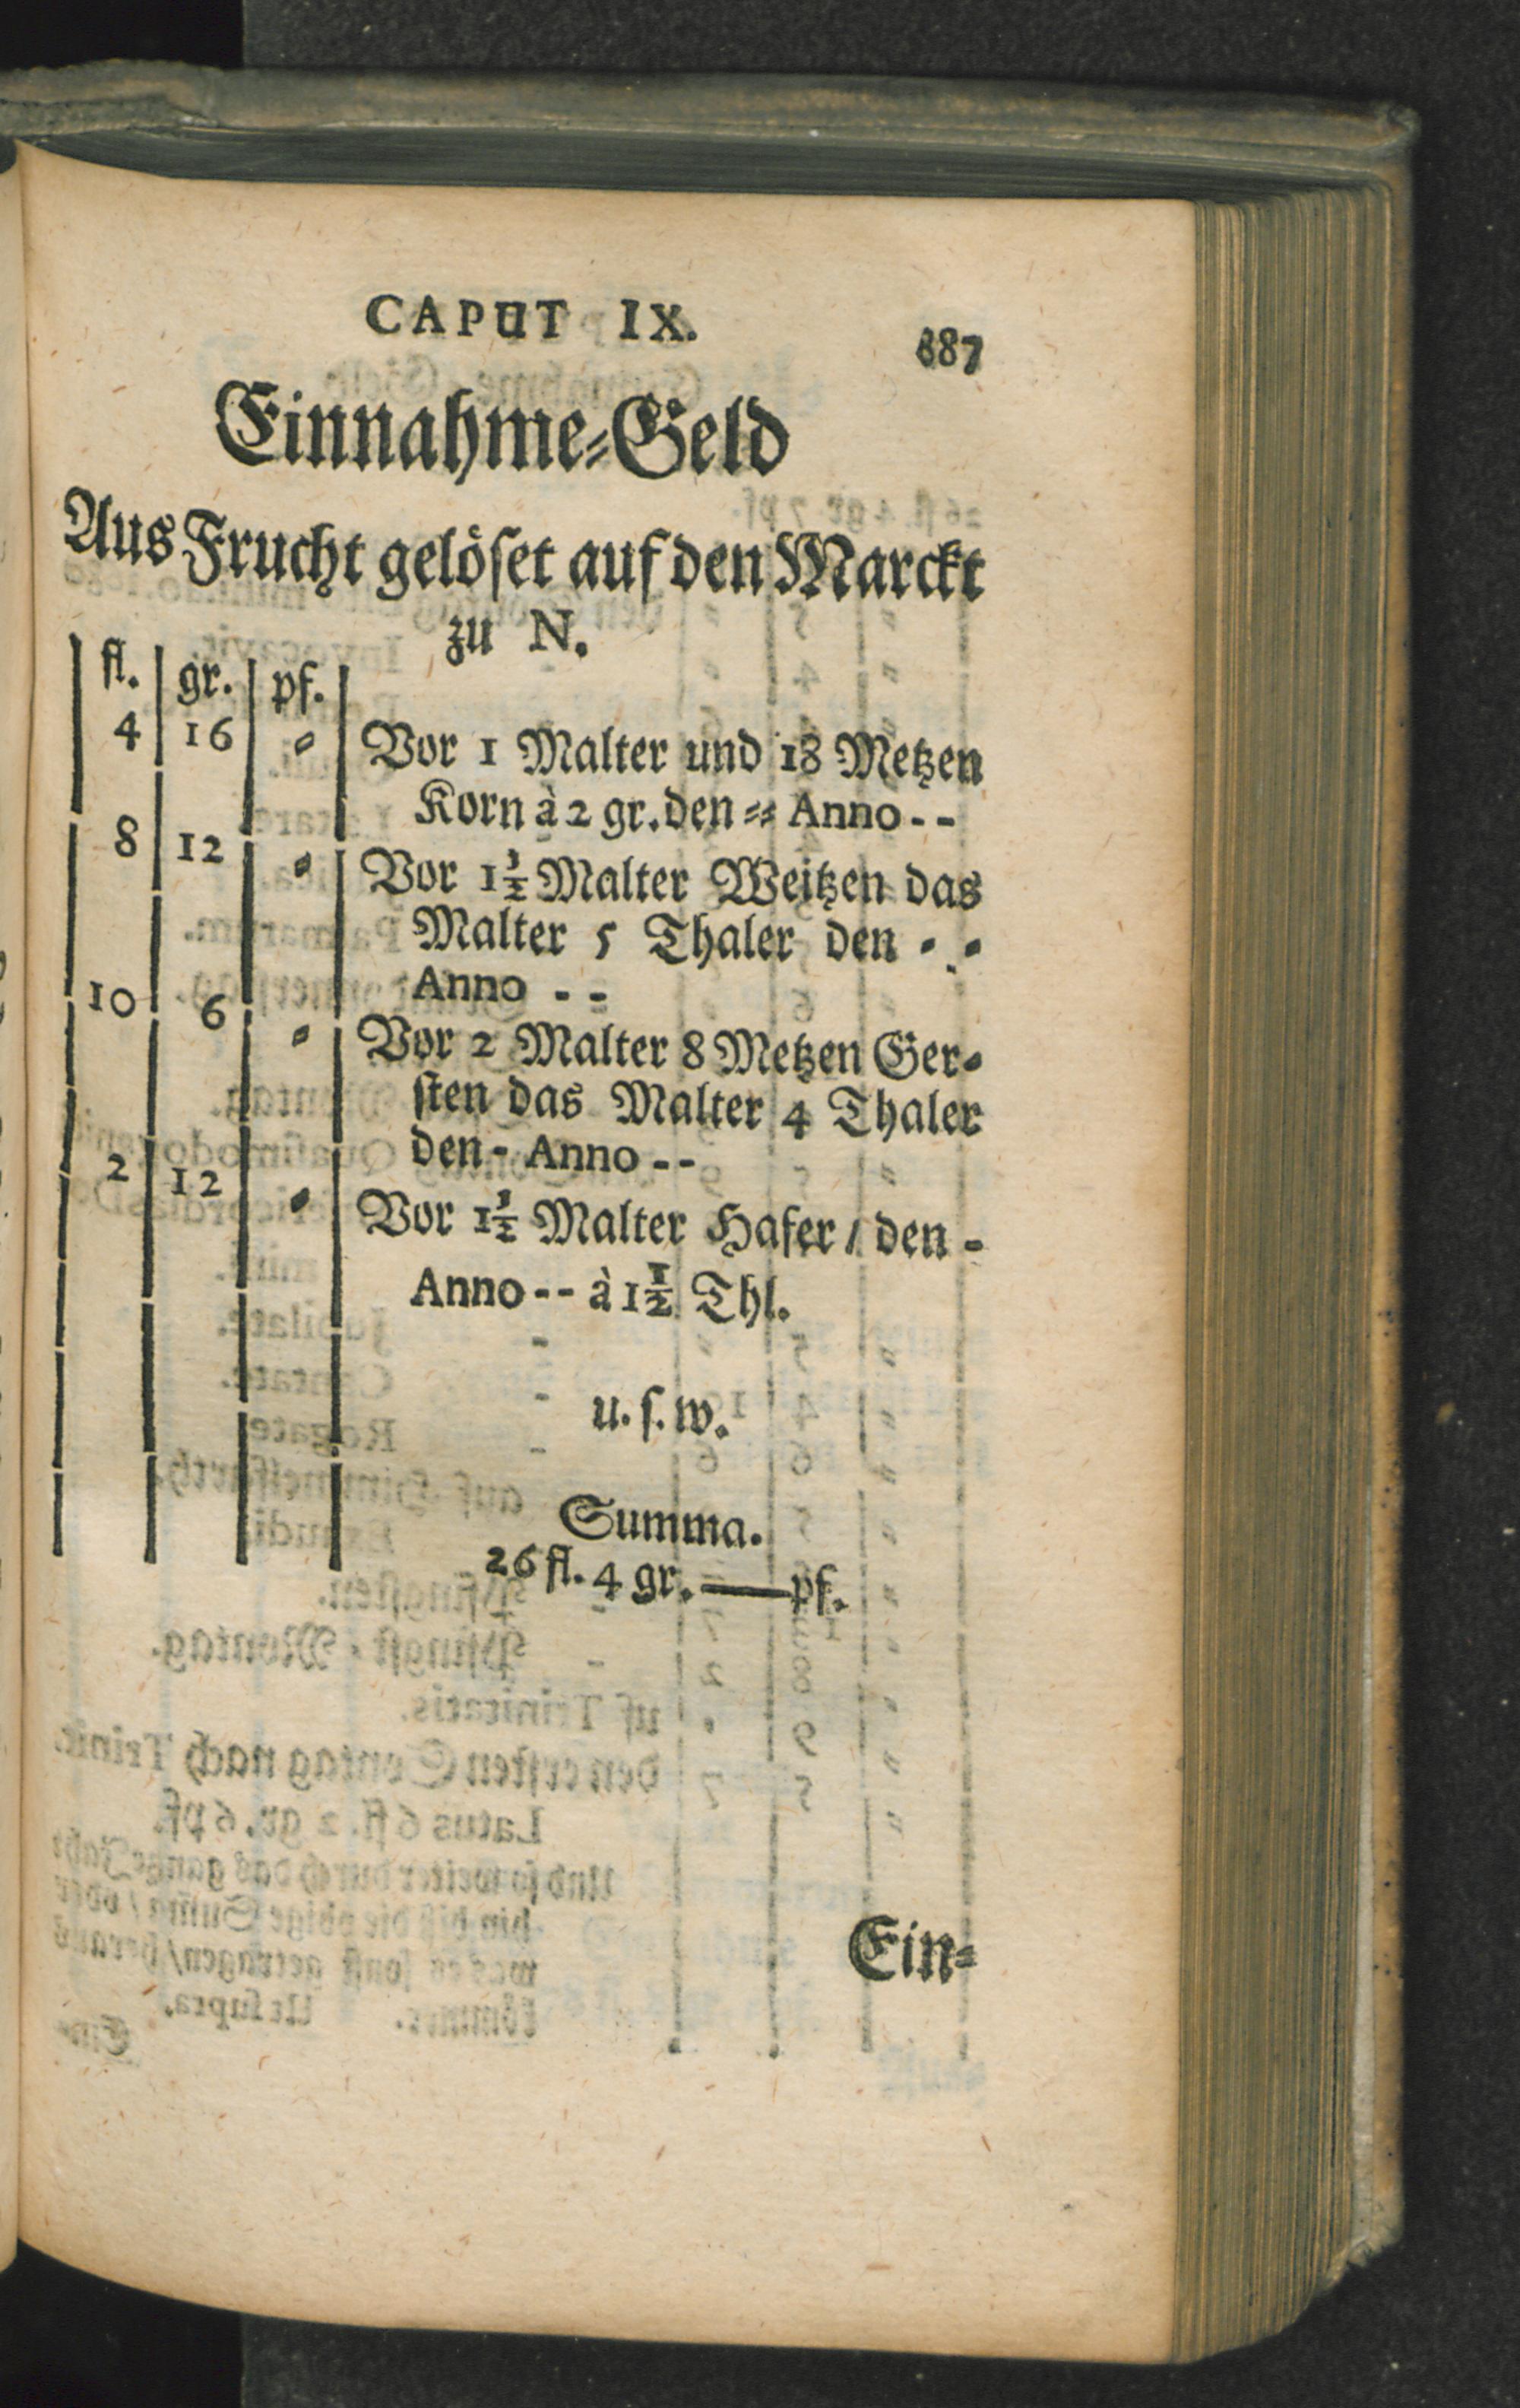 CAPUT IX. 887
Einnahme-Geld
Aus Frucht gelöset auf den Marckt
zu N.
fl. gr. pf.
4 16 - Vor 1 Malter und 18 Metzen
Korn à 2 gr. den - - Anno - -
8 12 - Vor 1 1/2 Malter Weitzen das
Malter 5 Thaler den - -
Anno - -
10 6 - Vor 2 Malter 8 Metzen Ger-
sten das Malter 4 Thaler
den - Anno - -
2 12 - Vor 1 1/2 Malter Hafer / den -
Anno - - à 1 1/2 Thl.
u. s. w.
Summa.
26 fl. 4 gr. — pf.
Ein-